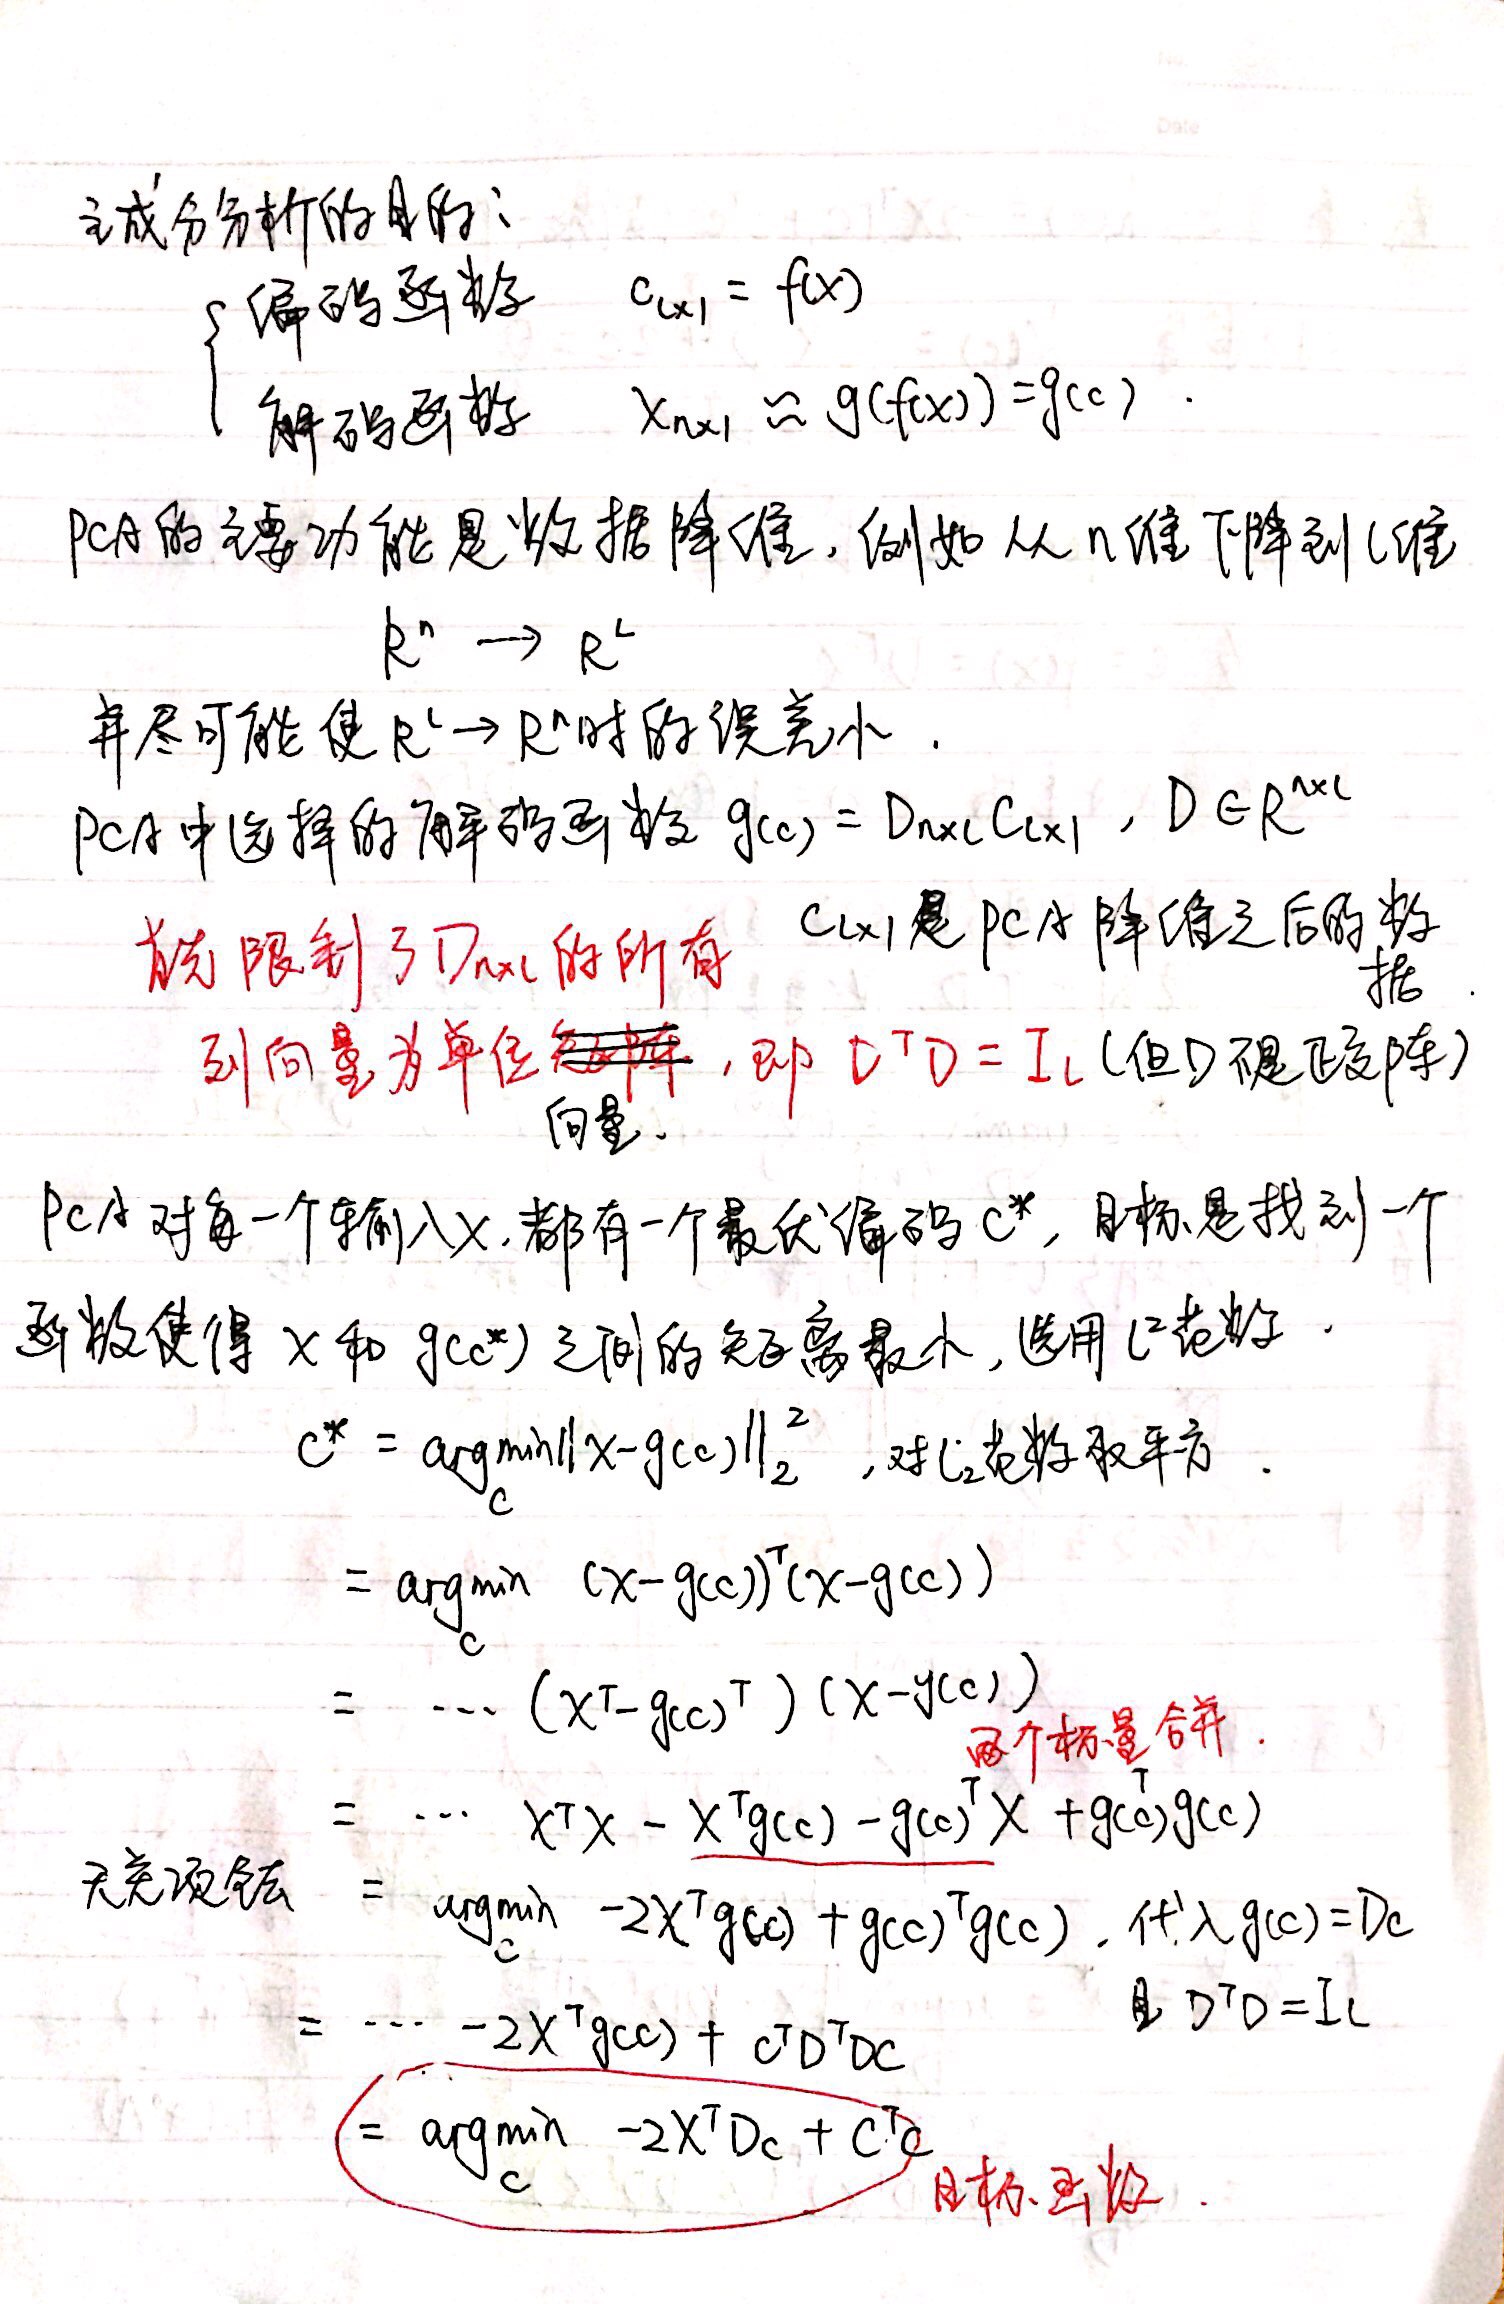 Date
主成分分析的目的:
{ 编码函数 c_{l×1} = f(x)
解码函数 x_{n×1} ≈ g(f(x)) = g(c) .
PCA的主要功能是数据降维, 例如从n维下降到l维
Rⁿ → Rᴸ
并尽可能使Rᴸ→Rⁿ时的误差小.
PCA中选择的解码函数 g(c) = D_{n×l} C_{l×1} , D∈R^{n×l}
C_{l×1}是PCA降维之后的数据.
首先限制了D_{n×l}的所有
列向量为单位向量. , 即 DᵀD = I_l (但D不是正交阵)
PCA对每一个输入x, 都有一个最优编码c*, 目标是找到一个
函数使得 x 和 g(c*) 之间的距离最小, 选用L²范数.
c* = argmin_c ||x-g(c)||₂² , 对L₂范数取平方.
= argmin_c (x-g(c))ᵀ(x-g(c))
= ... (xᵀ-g(c)ᵀ)(x-g(c))
两个标量合并.
= ... xᵀx - xᵀg(c) - g(c)ᵀx + g(c)ᵀg(c)
无关项舍去 = argmin_c -2xᵀg(c) + g(c)ᵀg(c) , 代入g(c)=Dc
且 DᵀD=I_l
= ... -2xᵀg(c) + cᵀDᵀDc
= argmin_c -2xᵀDc + cᵀc
目标函数.